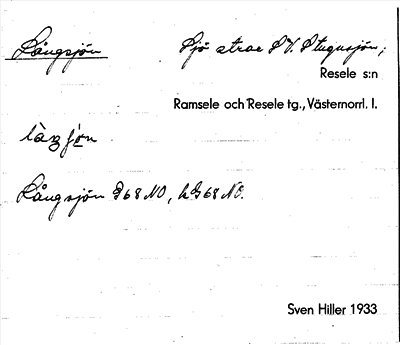 Långsjön Sjö strax S V. Stugusjön,
Resele s:n
Ramsele och Resele tg., Västernorrl. l.
làŋʃön
Långsjön G68 NO, h G68 NO.
Sven Hiller 1933